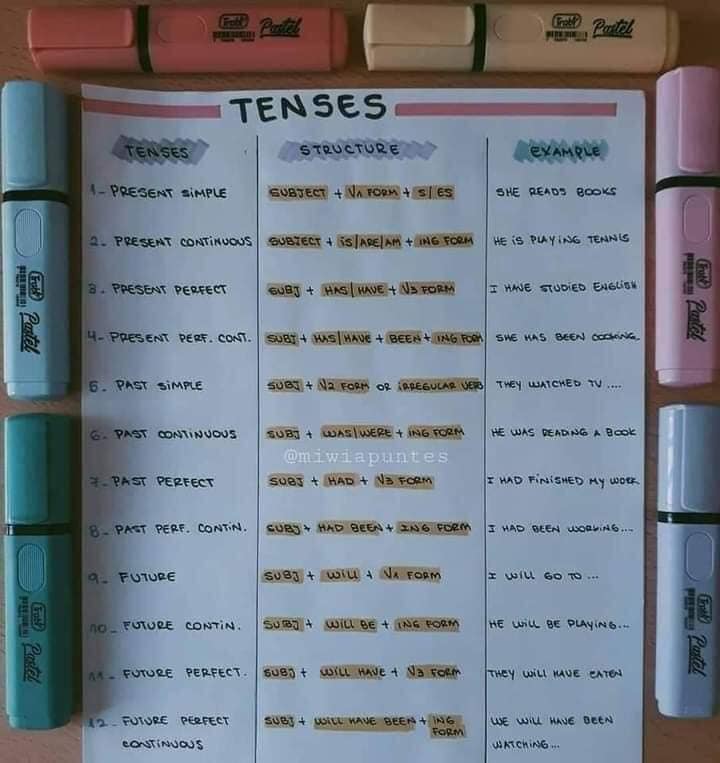 Trabi Pastel
Trabi Pastel
TENSES
TENSES STRUCTURE EXAMPLE
1- PRESENT SIMPLE SUBJECT + V1 FORM + S/ES SHE READS BOOKS
2- PRESENT CONTINUOUS SUBJECT + IS/ARE/AM + ING FORM HE IS PLAYING TENNIS
3- PRESENT PERFECT SUBJ + HAS/HAVE + V3 FORM I HAVE STUDIED ENGLISH
4- PRESENT PERF. CONT. SUBJ + HAS/HAVE + BEEN + ING FORM SHE HAS BEEN COOKING
5- PAST SIMPLE SUBJ + V2 FORM OR IRREGULAR VERB THEY WATCHED TV ....
6- PAST CONTINUOUS SUBJ + WAS/WERE + ING FORM HE WAS READING A BOOK
@miwiapuntes
7- PAST PERFECT SUBJ + HAD + V3 FORM I HAD FINISHED MY WORK
8- PAST PERF. CONTIN. SUBJ + HAD BEEN + ING FORM I HAD BEEN WORKING...
9- FUTURE SUBJ + WILL + V1 FORM I WILL GO TO ...
10- FUTURE CONTIN. SUBJ + WILL BE + ING FORM HE WILL BE PLAYING...
11- FUTURE PERFECT. SUBJ + WILL HAVE + V3 FORM THEY WILL HAVE EATEN
12- FUTURE PERFECT SUBJ + WILL HAVE BEEN + ING WE WILL HAVE BEEN
CONTINUOUS FORM WATCHING...
Trabi Pastel
Trabi Pastel
Trabi Pastel
Trabi Pastel